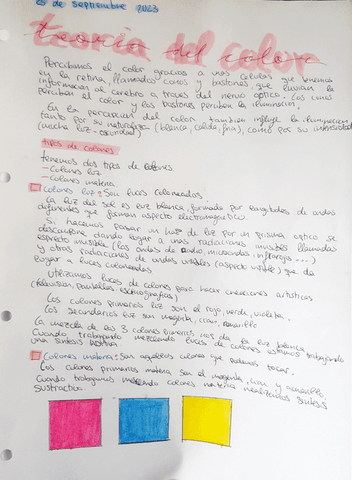 25 de septiembre 2023
teoria del color
Percibimos el color gracias a unas celulas que tenemos
en la retina, llamados conos y bastones que envian la
informacion al cerebro a traves del nervio optico. Los conos
perciben el color y los bastones perciben la iluminacion.
En la percepcion del color tambien influye la iluminacion
tanto por su naturaleza (blanca, calida, fria), como por su intensidad
(mucha luz - oscuridad)
tipos de colores.
tenemos dos tipos de colores.
- Colores luz
- Colores materia.
Colores luz: Son luces coloreadas.
La luz del sol es luz blanca, formada por longitudes de ondas
diferentes que forman aspecto electromagnetico
Si hacemos pasar un haz de luz por un prisma optico se
descompone dando lugar a unas radiaciones invisibles llamadas
espectro invisible (las ondas de radio, microondas infrarrojos...)
y otras radiaciones de ondas visibles (aspecto visible) que da
lugar a luces coloreadas
Utilizamos luces de colores para hacer creaciones artisticas
(television, pantallas, escenograficas)
Los colores primarios luz son el rojo, verde, violeta.
Los secundarios luz son magenta, cian, amarillo
La mezcla de los 3 colores primarios nos da la luz blanca
Cuando trabajamos mezclando luces de colores estamos trabajando
una sintesis aditiva
Colores materia: Son aquellos colores que podemos tocar.
Los colores primarios materia son el magenta, cian y amarillo.
Cuando trabajamos mezclando colores materia realizamos sintesis
sustractiva.